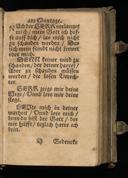 am Sontage.
Ach HErr verlanget
mich / mein Gott ich hof-
fe auff dich / las mich nicht
zu schanden werden / das
sich meine feinde nicht frewen
uber mich.
Denn keiner wird zu
schanden / der deiner harret /
aber zu schanden müssen
werden / die losen Verech-
ter.
HErr zeige mir deine
Wege / Vnd lere mir deine
steige.
Leite mich in deiner
warheit / Vnd lere mich /
denn du bist der Gott / der
mir hilfft / teglich harre ich
dein.
Gedencke